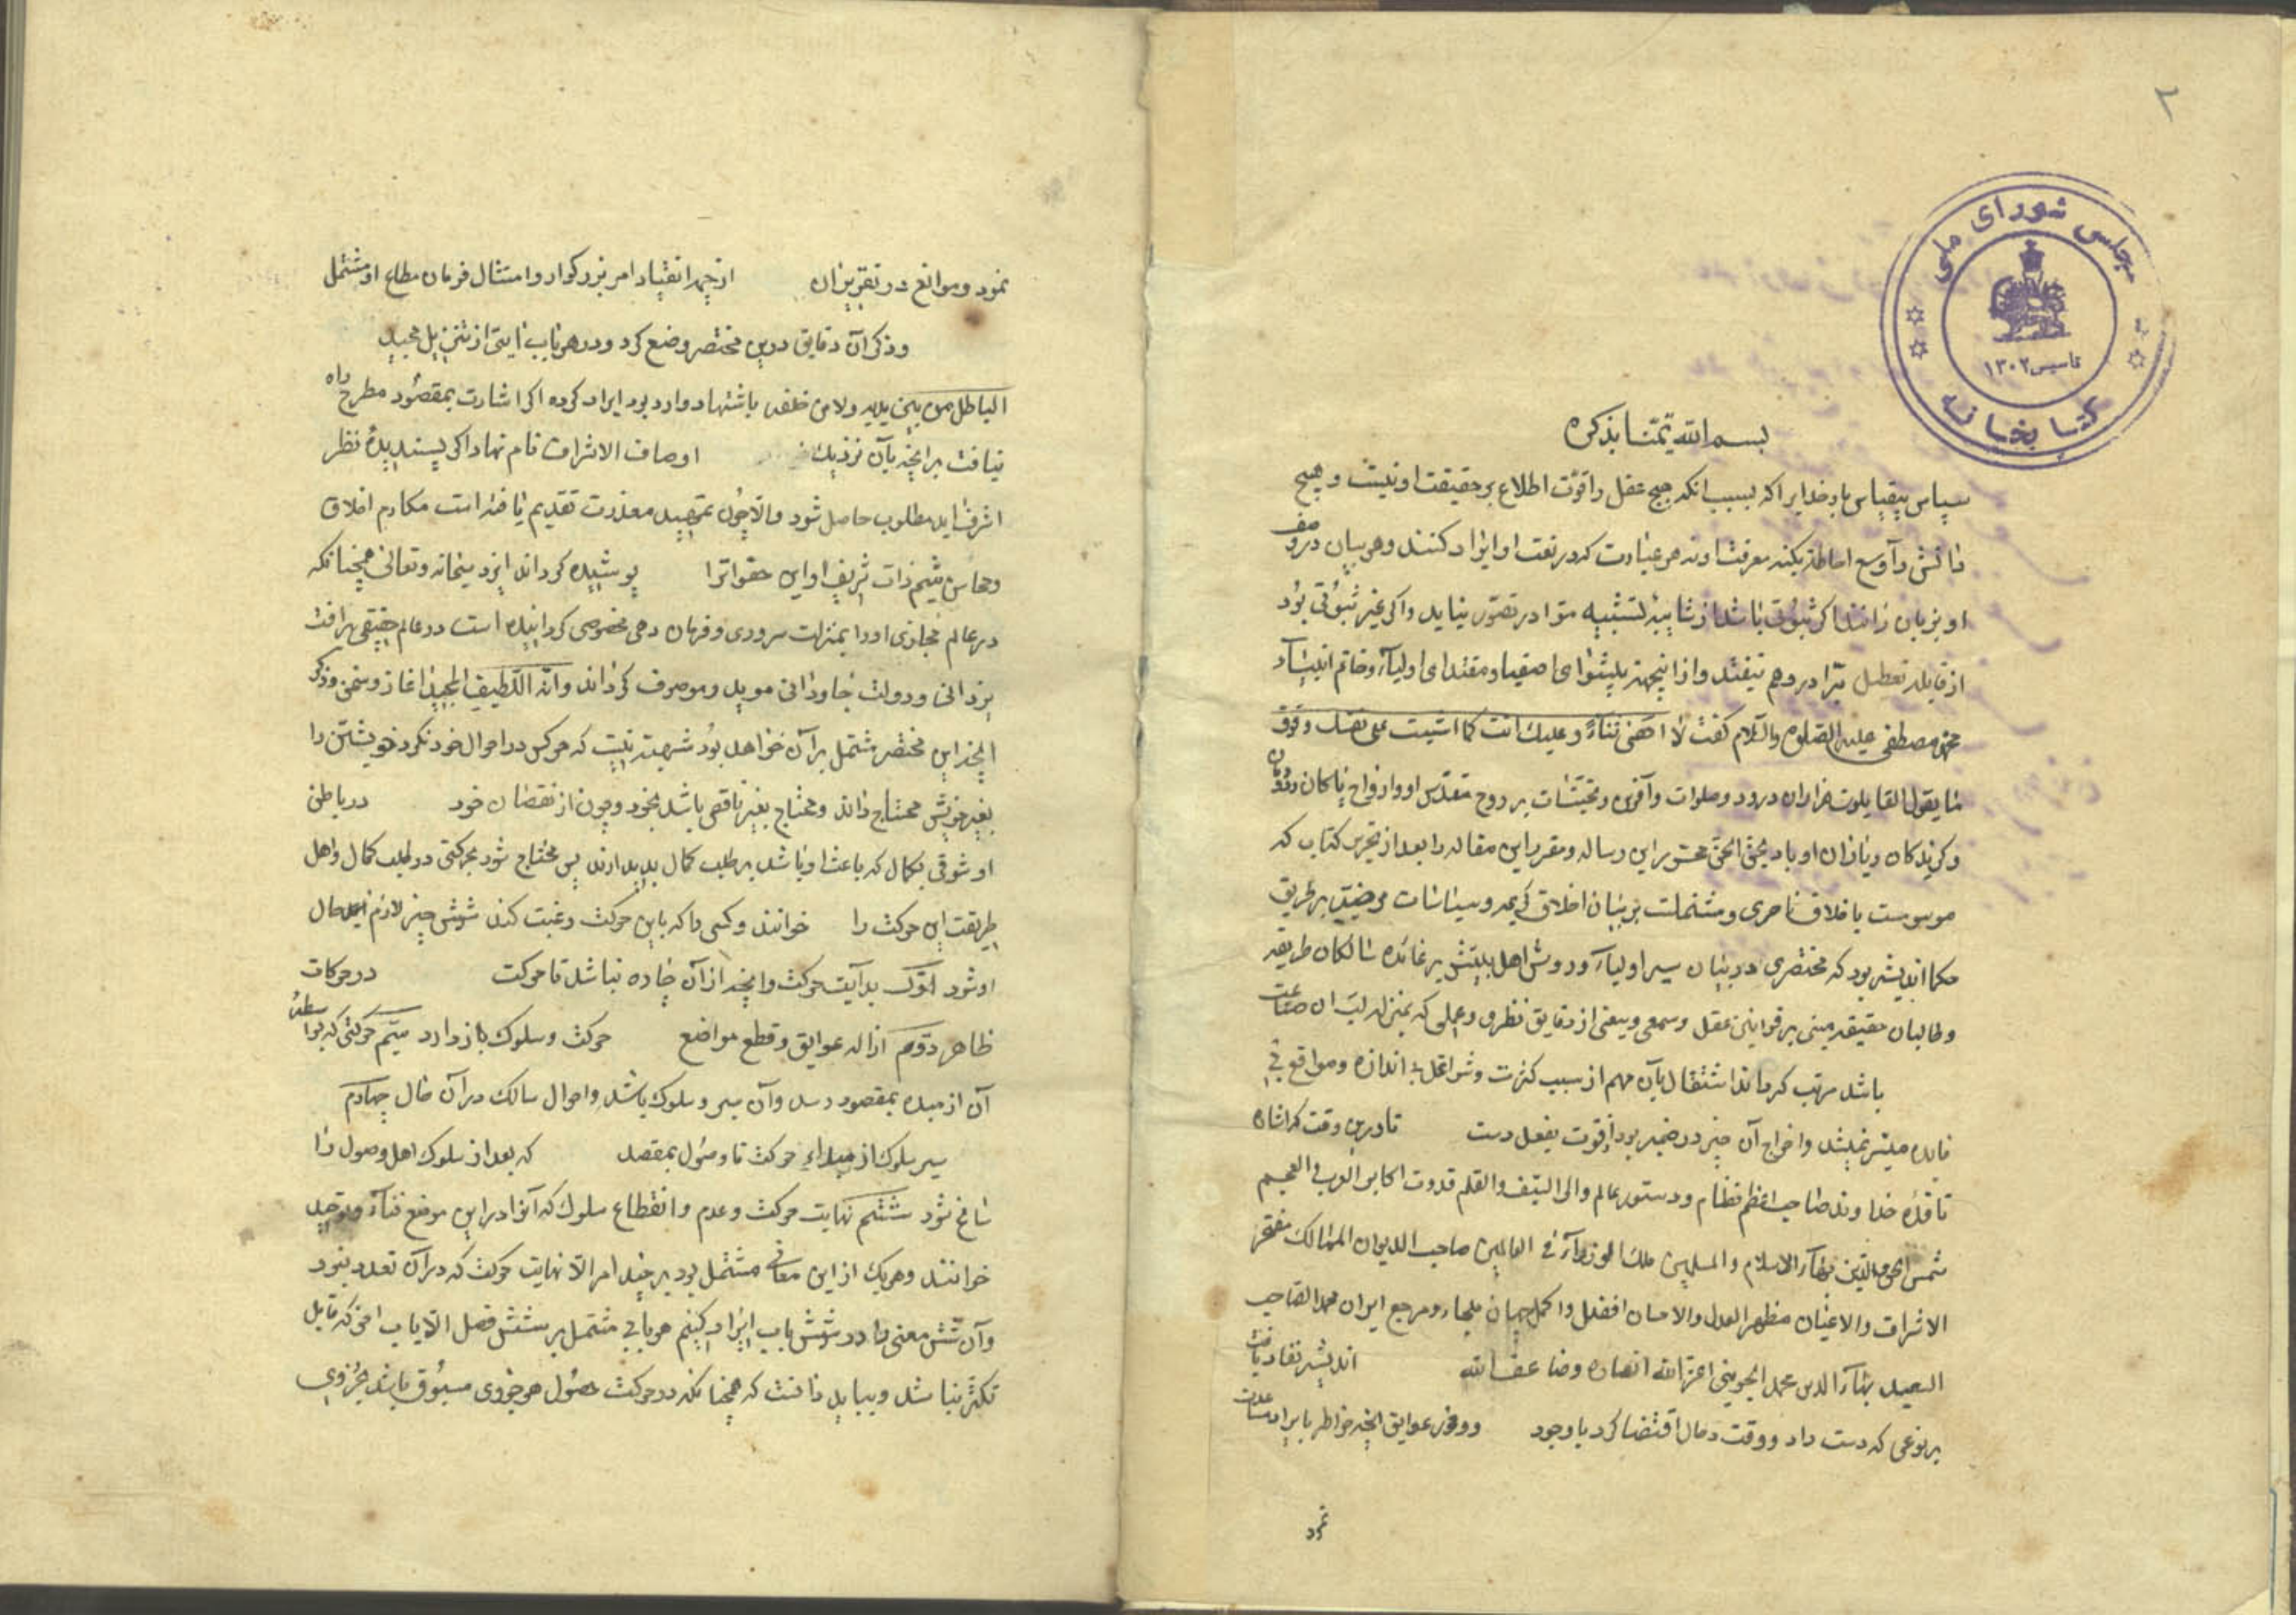 ۲
مجلس شورای ملی
تاسیس ۱۳۰۲
کتابخانه
بسم الله تیمنا بذکره
سپاس بیقیاس بارخدایرا که بسبب انکه هیچ عقل را قوت اطلاع بر حقیقت او نیست و هیچ
دانش را وسع احاطه بکنه معرفت او نه هر عبارت که در نعت او ایراد کنند و هر بیان که در وصف
او بزبان رانند اکر ثبوتی باشد از شایبه تشبیه مترا در تصور نیاید و اکر غیر ثبوتی بود
از قایله تعطیل مترا در وهم نیفتد و از اینجهة پیشوای اصفیا و مقتدای اولیآء و خاتم انبیآء
محمد مصطفی علیه الصلوة والسلام کفت لا احصی ثناء علیک انت کما اثنیت علی نفسک و فوق
ما یقول القایلون هزاران درود و صلوات و آفرین و تحیّات بر روح مقدّس او و ارواح پاکان دودمان
و کزیدکان و یاران او باد بحق الحق محرّر این رساله و مقرر این مقاله را بعد از تحریر کتاب که
موسومست باخلاق ناصری و مشتملست بر بیان اخلاق کریمه و سیاسات مرضیّه بر طریق
حکما اندیشه بود که مختصری در بیان سیر اولیآء و روش اهل بینش بر قاعده سالکان طریقه
و طالبان حقیقه مبنی بر قوانین عقل و سمعی و منبی از دقایق نظری و عملی که بمنزله لب ان صناعت
باشد مرتب کرداند اشتغال بآن مهم از سبب کثرت و شواغل بی اندازه و موانع بی
فایده میسّر نمیشد و اخراج آن چیز در ضمیر بود از قوت بفعل دست تا درین وقت که اشاره
نافذه خداوند صاحب اعظم نظام و دستور عالم والی السیف والقلم قدوت اکابر العرب و العجم
شمس الحق والدین بهآء الاسلام والمسلمین ملک الوزرآء فی العالمین صاحب الدیوان الممالک مفخر
الاشراف والاعیان مظهر العدل والاحسان افضل و اکمل جهان ملجاء و مرجع ایران محمد الصاحب
السعید بهآء الدین محمد الجوینی اعز الله انصاره وضاعف الله اندیشه نفاد یافت
بر نوعی که دست داد و وقت و حال اقتضا کرد با وجود و وفور عوایق انچه خاطر بایراد مساعدت
نمود
نمود و موانع در تقریر ان از جهة انقیاد امر بزرکوار و امتثال فرمان مطاع او مشتمل
و ذکر آن دقایق درین مختصر وضع کرد و در هر باب ایتی از تنزیل مجید
الباطل من بین یدیه ولا من خلفه باستشهاد وارد بود ایراد کرده اکر اشارت بمقصود مطرح راه
نیافت بر انچه بآن نزدیک اوصاف الاشراف نام نهاد اکر پسندیده نظر
اشرف اید مطلوب حاصل شود والا چون تمهید معذرت تقدیم یافته است مکارم اخلاق
و محاسن شیم ذات شریف او این حقوات را پوشیده کرداند ایزد سبحانه و تعالی همچنانکه
در عالم مجازی او را بمنزلت سروری و فرمان دهی مخصوص کردانیده است در عالم حقیقی برافت
یزدانی و دولت جاودانی موید و موصوف کرداند وانه اللطیف المجیب اغاز سخن و ذکر
انچه این مختصر مشتمل بر آن خواهد بود شبهت نیست که هر کس در احوال خود نکرد خویشتن را
بغیر خویش محتاج داند و محتاج بغیر ناقص باشد بخود و چون از نقصان خود در باطن
او شوقی بکمال که باعث او باشد بر طلب کمال بدید ارند پس محتاج شود بحرکتی در طلب کمال و اهل
طریقت این حرکت را خوانند و کسی را که باین حرکت رغبت کند شش چیز لازم حال
او شود اوّل بدآیت حرکت و انچه از آن چاره نباشد تا حرکت در حرکات
ظاهر دوّم ازاله عوایق و قطع موانع حرکت و سلوک باز دارد سیّم حرکتی که بواسطه
آن از مبدء بمقصود رسد و آن سیر و سلوک باشد و احوال سالک در آن حال چهارم
سیر سلوک از مبداء حرکت تا وصول بمقصد که بعد از سلوک اهل وصول را
سانح شود ششم نهایت حرکت و عدم و انقطاع سلوک که آنرا در این موضع فنآء و توحید
خوانند و هر یک از این معانی مشتمل بود بر چند امر الا نهایت حرکت که در آن تعدد نبود
و آن شش معنی را در شش باب ایراد کنیم هر بابی مشتمل بر شش فصل الا باب اخر که قابل
تکثر نباشد و بباید دانست که همچنانکه در حرکت حصول هر جزوی مسبوق باشد بجزوی